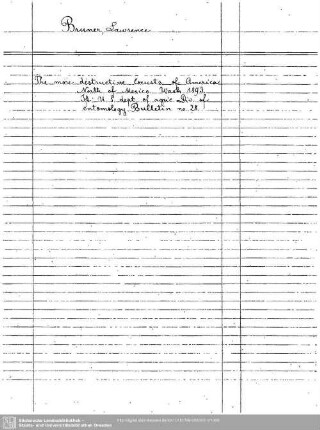 Bruner, Lawrence
The more destructive locusts of America
North of Mexico. Wash 1893
U S dept. of agric Div. of
entomology Bulletin no. 28.
Sächsische Landesbibliothek -
Staats- und Universitätsbibliothek Dresden